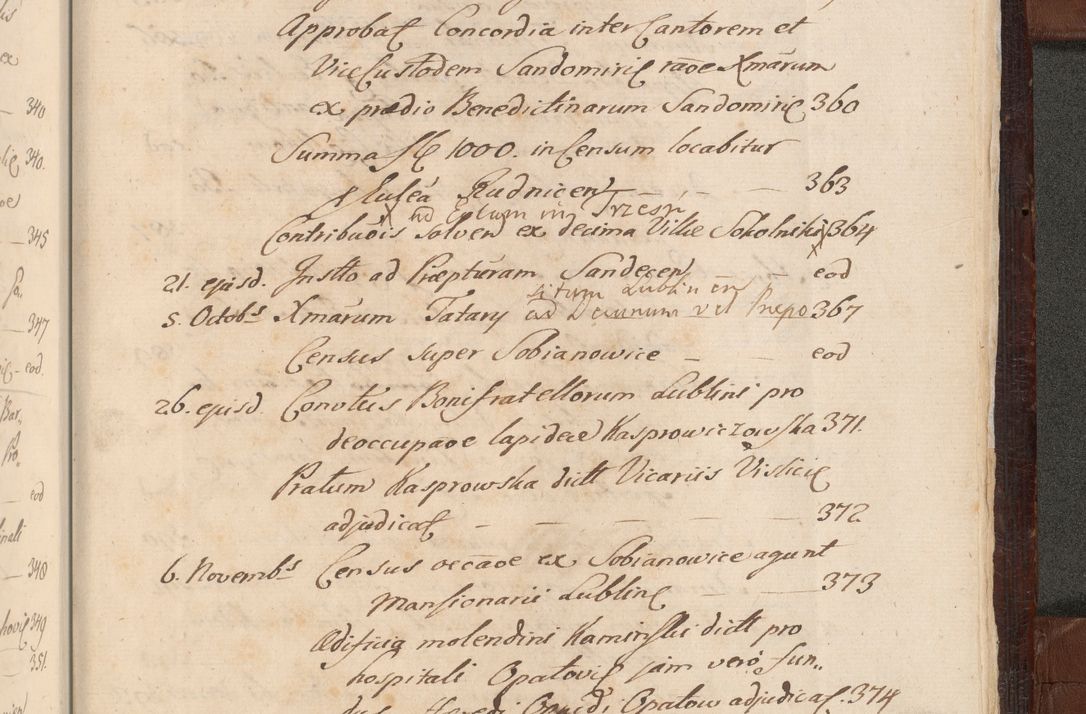 340
340.
345
347
eod.
Bar.
Pro.
eod
348
349
351.
Approbaę Concordia inter Cantorem et
ViceCustodem Sandomirię rãoe Xmãrum
ex prædio Benedictinarum Sandomirię 360
Summa fl 1000. in Censum locabitur
Rudnicen — — — 363
X ad Eplum in Trzesń
Contribuõis Solven ex decima Villæ Sokolniki X 364
21. ejusd. Instto ad Præptũram Sandecen — — eod
situm Lublinen
5. Octobs Xmãrum Tatary ad Decanum vel Prepo 367
Census super Sobianowice — — eod
26. ejusd. Conṽtus Bonifratellorum Lublini pro
deoccupãoe lapideæ Kasprowiczowska 371.
Pratum Kasprowska dict Vicariis Vislicię
adjudicaę — — — — — 372.
6. Novembs Census occãoe ex Sobianowice agunt
Mansionarii Lublinę — 373
Ædificia molendini Kaminski dict pro
hospitali Opatovię jam vero fun..
Opatow adjudicaę. 374